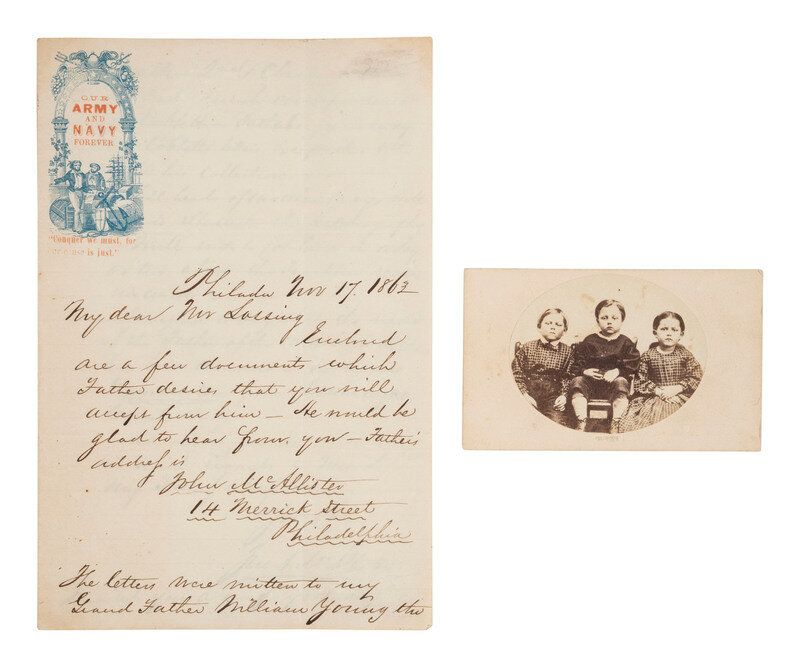 OUR
ARMY
AND
NAVY
FOREVER
"Conquer we must, for
our cause is just."
Philada Nov 17. 1863
My dear Mr Lossing
Enclosed
are a few documents which
Father desires that you will
accept from him — He would be
glad to hear from you — Father's
address is
John McAllister
14 Merrick Street
Philadelphia
The letters were written to my
Grand Father William Young the